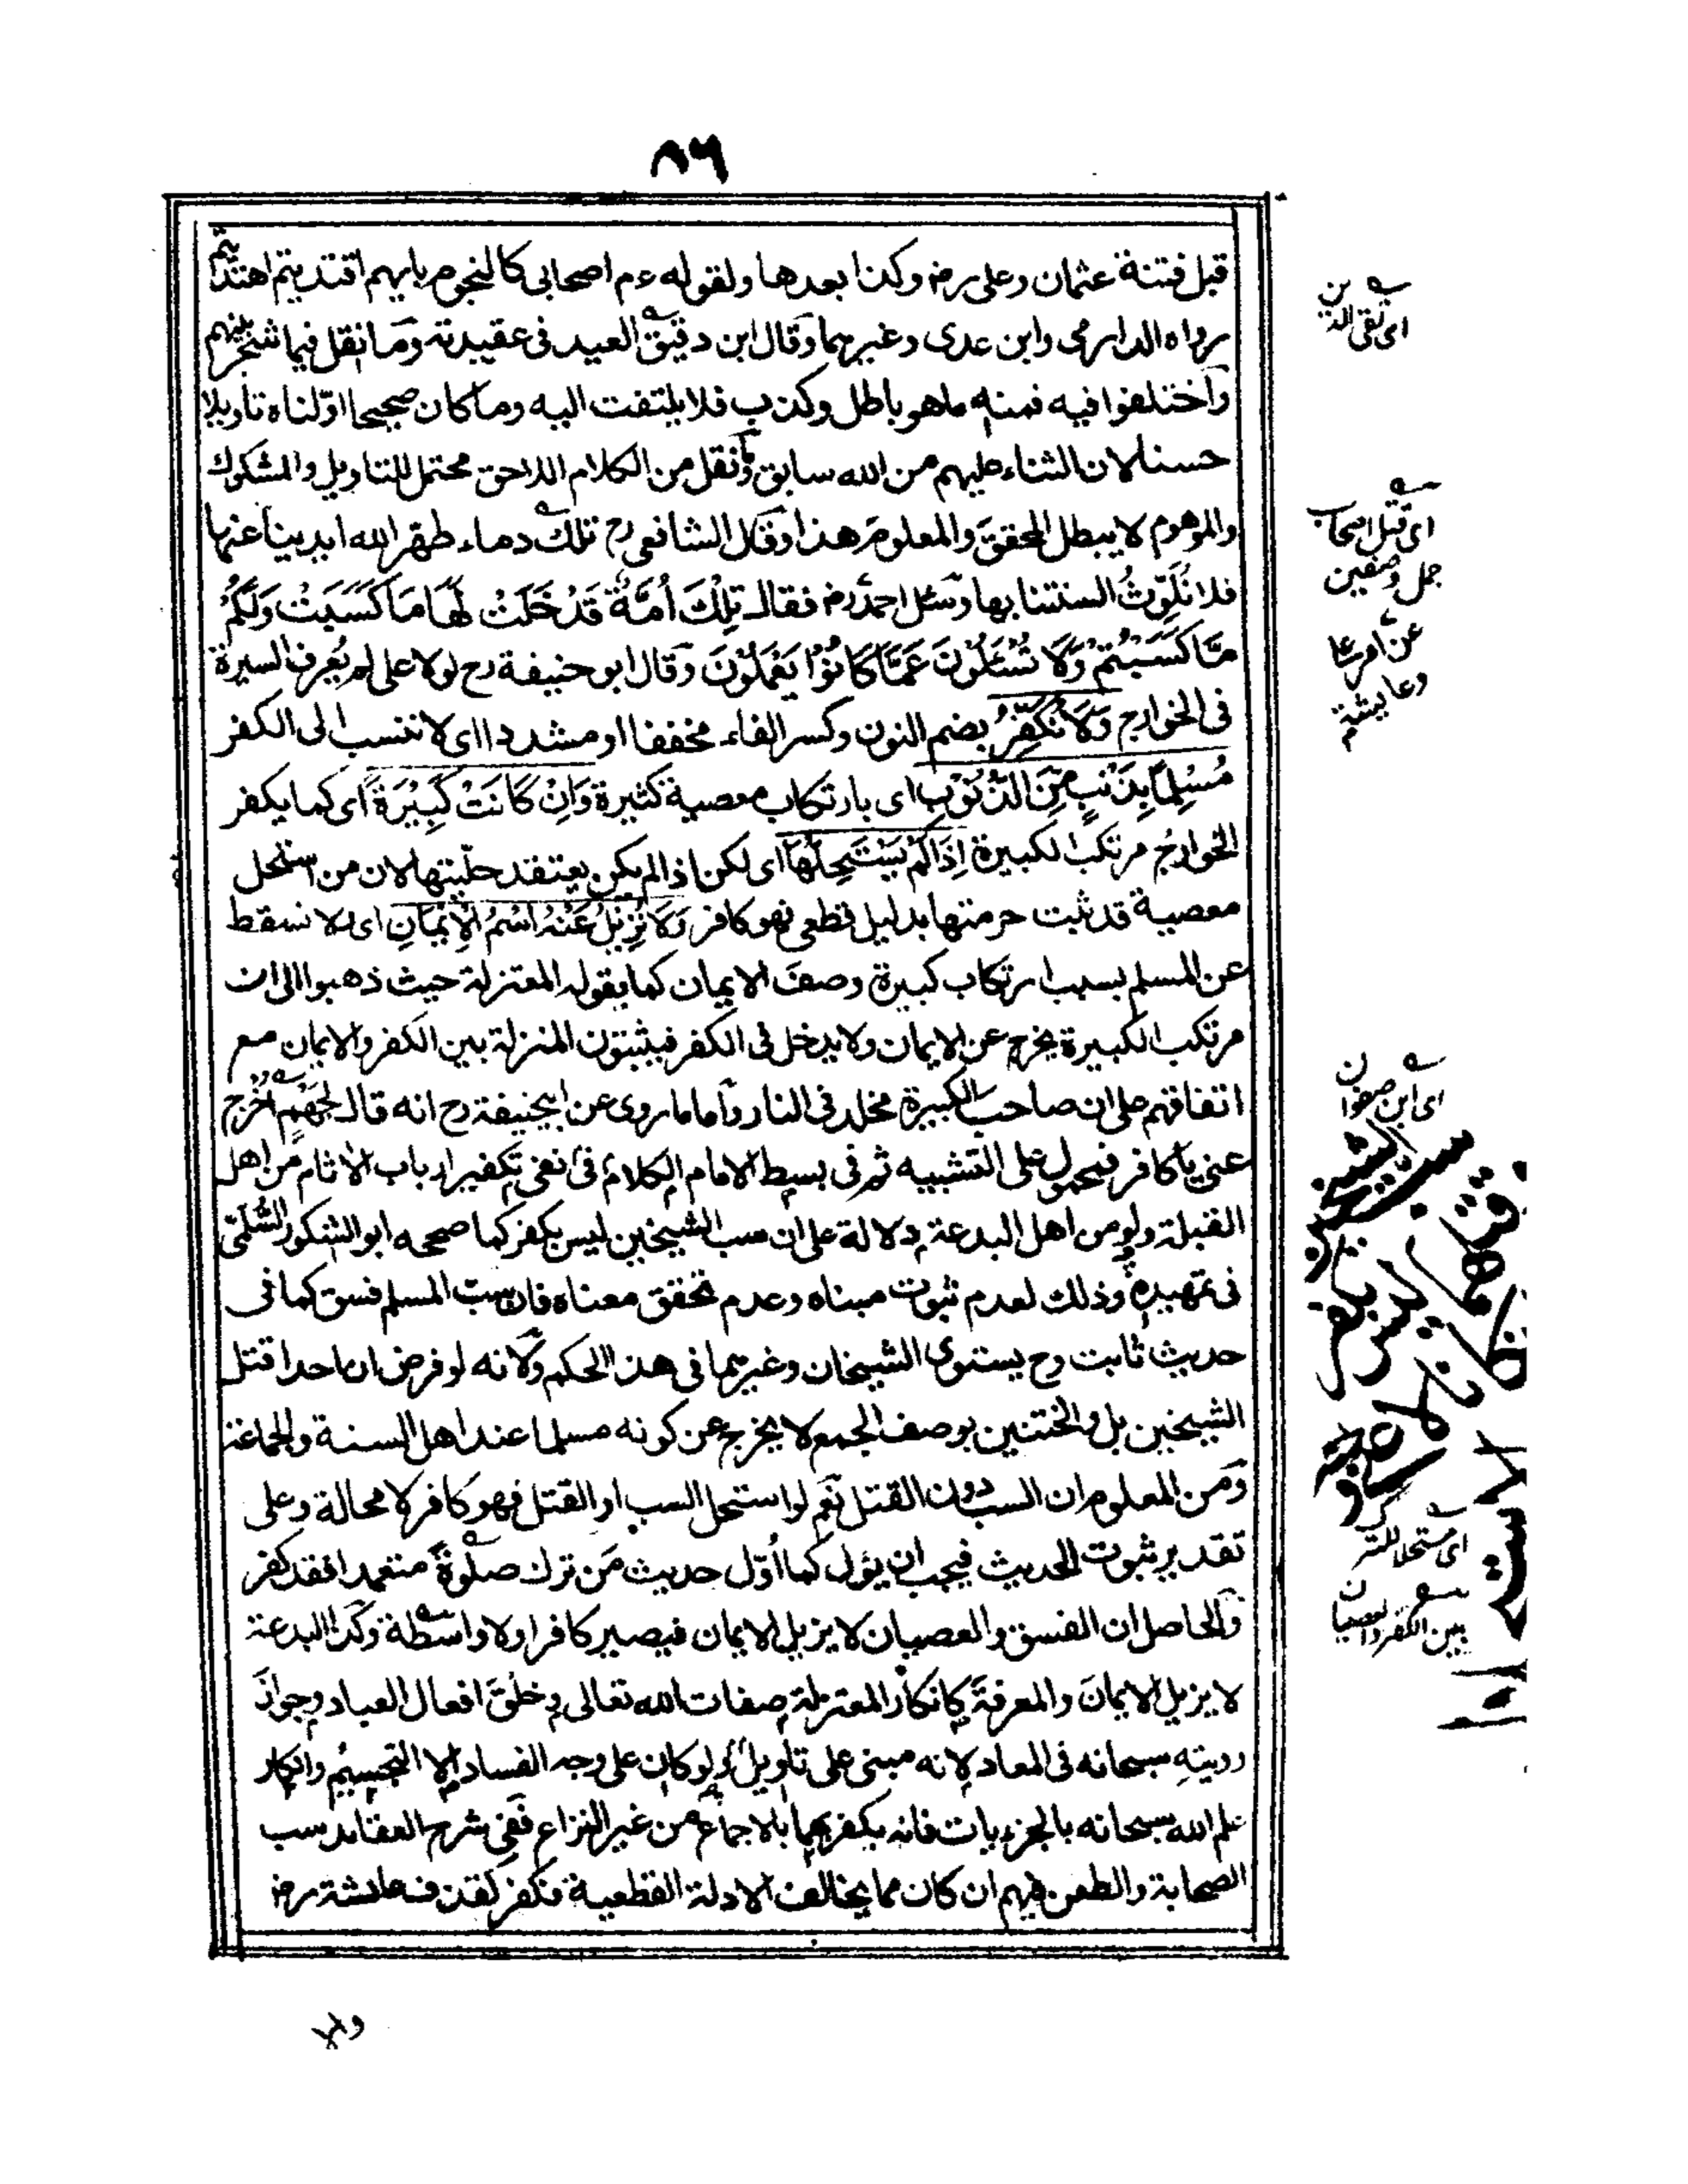 ٨٦
قبل فتنة عثمان وعلى رض وكذا بعدها ولقوله ءم اصحابى كالنجوم بايهم اقتديتم اهتديتم
رواه الدارمى وابن عدى وغيرهما وقال ابن دقيق العيد فى عقيدته وما نقل فيما شجر بينهم
واختلفوا فيه فمنه ما هو باطل وكذب فلا يلتفت اليه وما كان صحيحا اوّلناه تاويلا
حسنا لان الثناء عليهم من الله سابق وما نقل من الكلام اللاحق محتمل للتاويل والمشكوك
والموهوم لا يبطل المحقق والمعلوم هذا وقال الشافعى رح تلك دماء طهر الله ايدينا عنها
فلا نُلَوِّثُ السنتنا بها وسئل احمد رض فقال تِلْكَ أُمَّةٌ قَدْ خَلَتْ لَهَا مَا كَسَبَتْ وَلَكُمْ
مَّا كَسَبْتُمْ وَلَا تُسْئَلُوْنَ عَمَّا كَانُوْا يَعْمَلُوْنَ وقال ابو حنيفة رح لولا على لم يُعرف السيرة
فى الخوارج وَلَا نُكَفِّرُ بضم النون وكسر الفاء مخففا او مشددا اى لا ننسب الى الكفر
مُسْلِمًا بِذَنْبٍ مِّنَ الذُّنُوْبِ اى بارتكاب معصية كثيرة وَاِنْ كَانَتْ كَبِيْرَةً اى كما يكفر
الخوارج مرتكب الكبيرة اِذَا لَمْ يَسْتَحِلَّهَا اى لكن اذا لم يكن يعتقد حلّيتها لان من استحل
معصية قد ثبت حرمتها بدليل قطعى فهو كافر وَلَا نُزِيْلُ عَنْهُ اسْمُ الْاِيْمَانِ اى لا نسقط
عن المسلم بسبب ارتكاب كبيرة وصف الايمان كما يقوله المعتزلة حيث ذهبوا الى ان
مرتكب الكبيرة يخرج عن الايمان ولا يدخل فى الكفر فيثبتون المنزلة بين الكفر والايمان مع
اتفاقهم على ان صاحب الكبيرة مخلد فى النار وأما ما روى عن ابيحنيفة رح انه قال لجهم اخرج
عنى يا كافر فمحمول على التشبيه ثم فى بسط الامام الكلام فى نفى تكفير ارباب الاثام من اهل
القبلة ولو من اهل البدعة دلالة على ان سب الشيخين ليس بكفر كما صححه ابو الشكور السُّلمى
فى تمهيده وذلك لعدم ثبوت مبناه وعدم تحقق معناه فان سب المسلم فسق كما فى
حديث ثابت وح يستوى الشيخان وغيرهما فى هذا الحكم ولانه لو فرض ان احدا قتل
الشيخين بل والختنين بوصف الجمع لا يخرج عن كونه مسلما عند اهل السنة والجماعة
ومن المعلوم ان السب دون القتل نعم لو استحل السب او القتل فهو كافر لا محالة وعلى
تقدير ثبوت الحديث فيجب ان يؤل كما اُوّل حديث مَن ترك صلوة متعمدا فقد كفر
والحاصل ان الفسق والعصيان لا يزيل الايمان فيصير كافرا ولا واسطة وكذا البدعة
لا يزيل الايمان والمعرفة كانكار المعتزلة صفات الله تعالى وخلق افعال العباد وجواز
رويته سبحانه فى المعاد لانه مبنى على تاويل ولو كان على وجه الفساد الا التجسيم وانكار
علم الله سبحانه بالجزءيات فانه يكفر بهما بالاجماع من غير النزاع ففى شرح العقائد سب
الصحابة والطعن فيهم ان كان مما يخالف الادلة القطعية فكفر كقذف عائشة رض
والا
اى تقى الدين
اى قتل اصحاب
جمل وصفين
وعايشة
اى ابن صفوان
سب الشيخين
ليس بكفر
اى مستحلا للترك
بين الكفر والعصيان